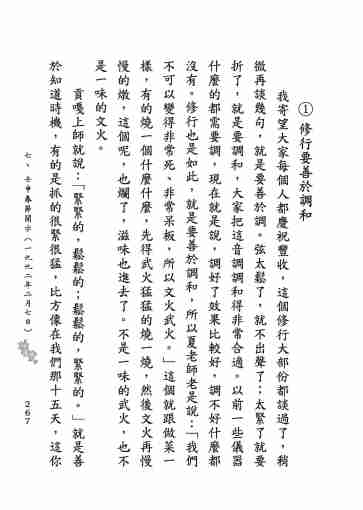 ① 修行要善於調和
我寄望大家每個人都慶祝豐收，這個修行大部份都談過了，稍
微再談幾句，就是要善於調。弦太鬆了，就不出聲了；太緊了就要
折了，就是要調和，大家把這音調調和得非常合適。以前一些儀器
什麼的都需要調，現在就是說，調好了效果比較好，調不好什麼都
沒有。修行也是如此，就是要善於調和，所以夏老師老是說：「我們
不可以變得非常死、非常呆板，所以文火武火。」這個就跟做菜一
樣，有的燒一個什麼什麼，先得武火猛猛的燒一燒，然後文火再慢
慢的燉，這個呢，也爛了，滋味也進去了。不是一味的武火，也不
是一味的文火。
貢嘎上師就說：「緊緊的，鬆鬆的；鬆鬆的，緊緊的。」就是善
於知道時機，有的是抓的很緊很猛。比方像在我們那十五天，這你
七、壬申春節開示（一九九二年二月七日）
267